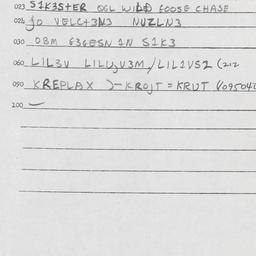 023 S1K3STER OGL WILD GOOSE CHASE
024 JO VELCT3N3 NUZLN3
030 OBM G3GESN IN S1K3
060 L1L3V LILUZU3M/LIL1VS2 (212
090 KREPLAX )-KROJT = KRUT VO9504
200 —